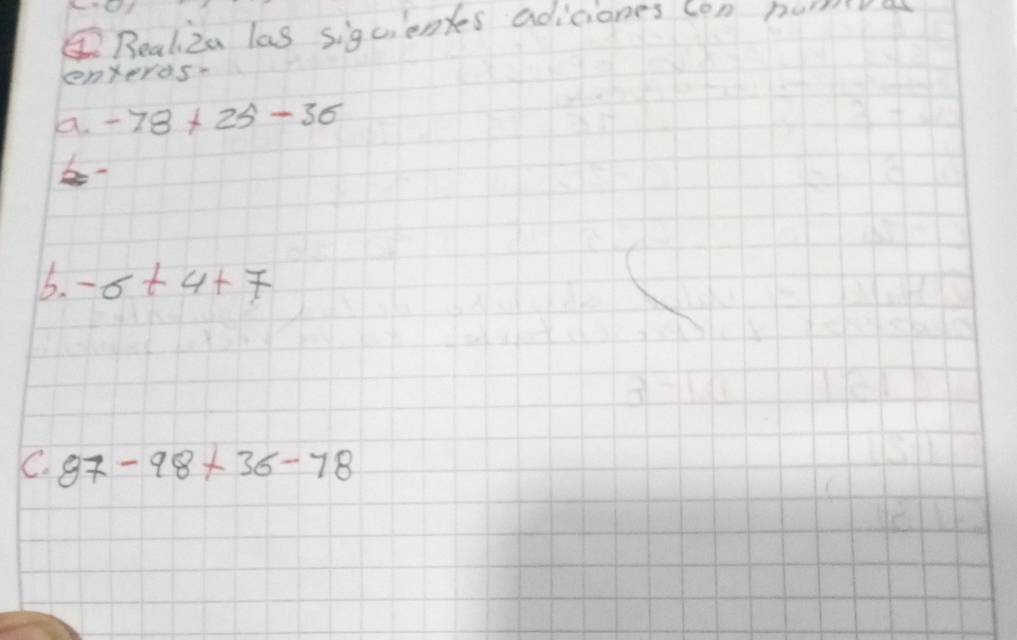 ① Realiza las siguientes adiciones con
enteros.
a. -78 + 25 - 36
b. -6 + 4 + 7
c. 87 - 98 + 36 - 78